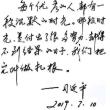 每个优秀的人，都有一
段沉默的时光。那段时
光，是付出了很多努力，却得
不到结果的日子，我们把
它叫做扎根。
2019.7.10